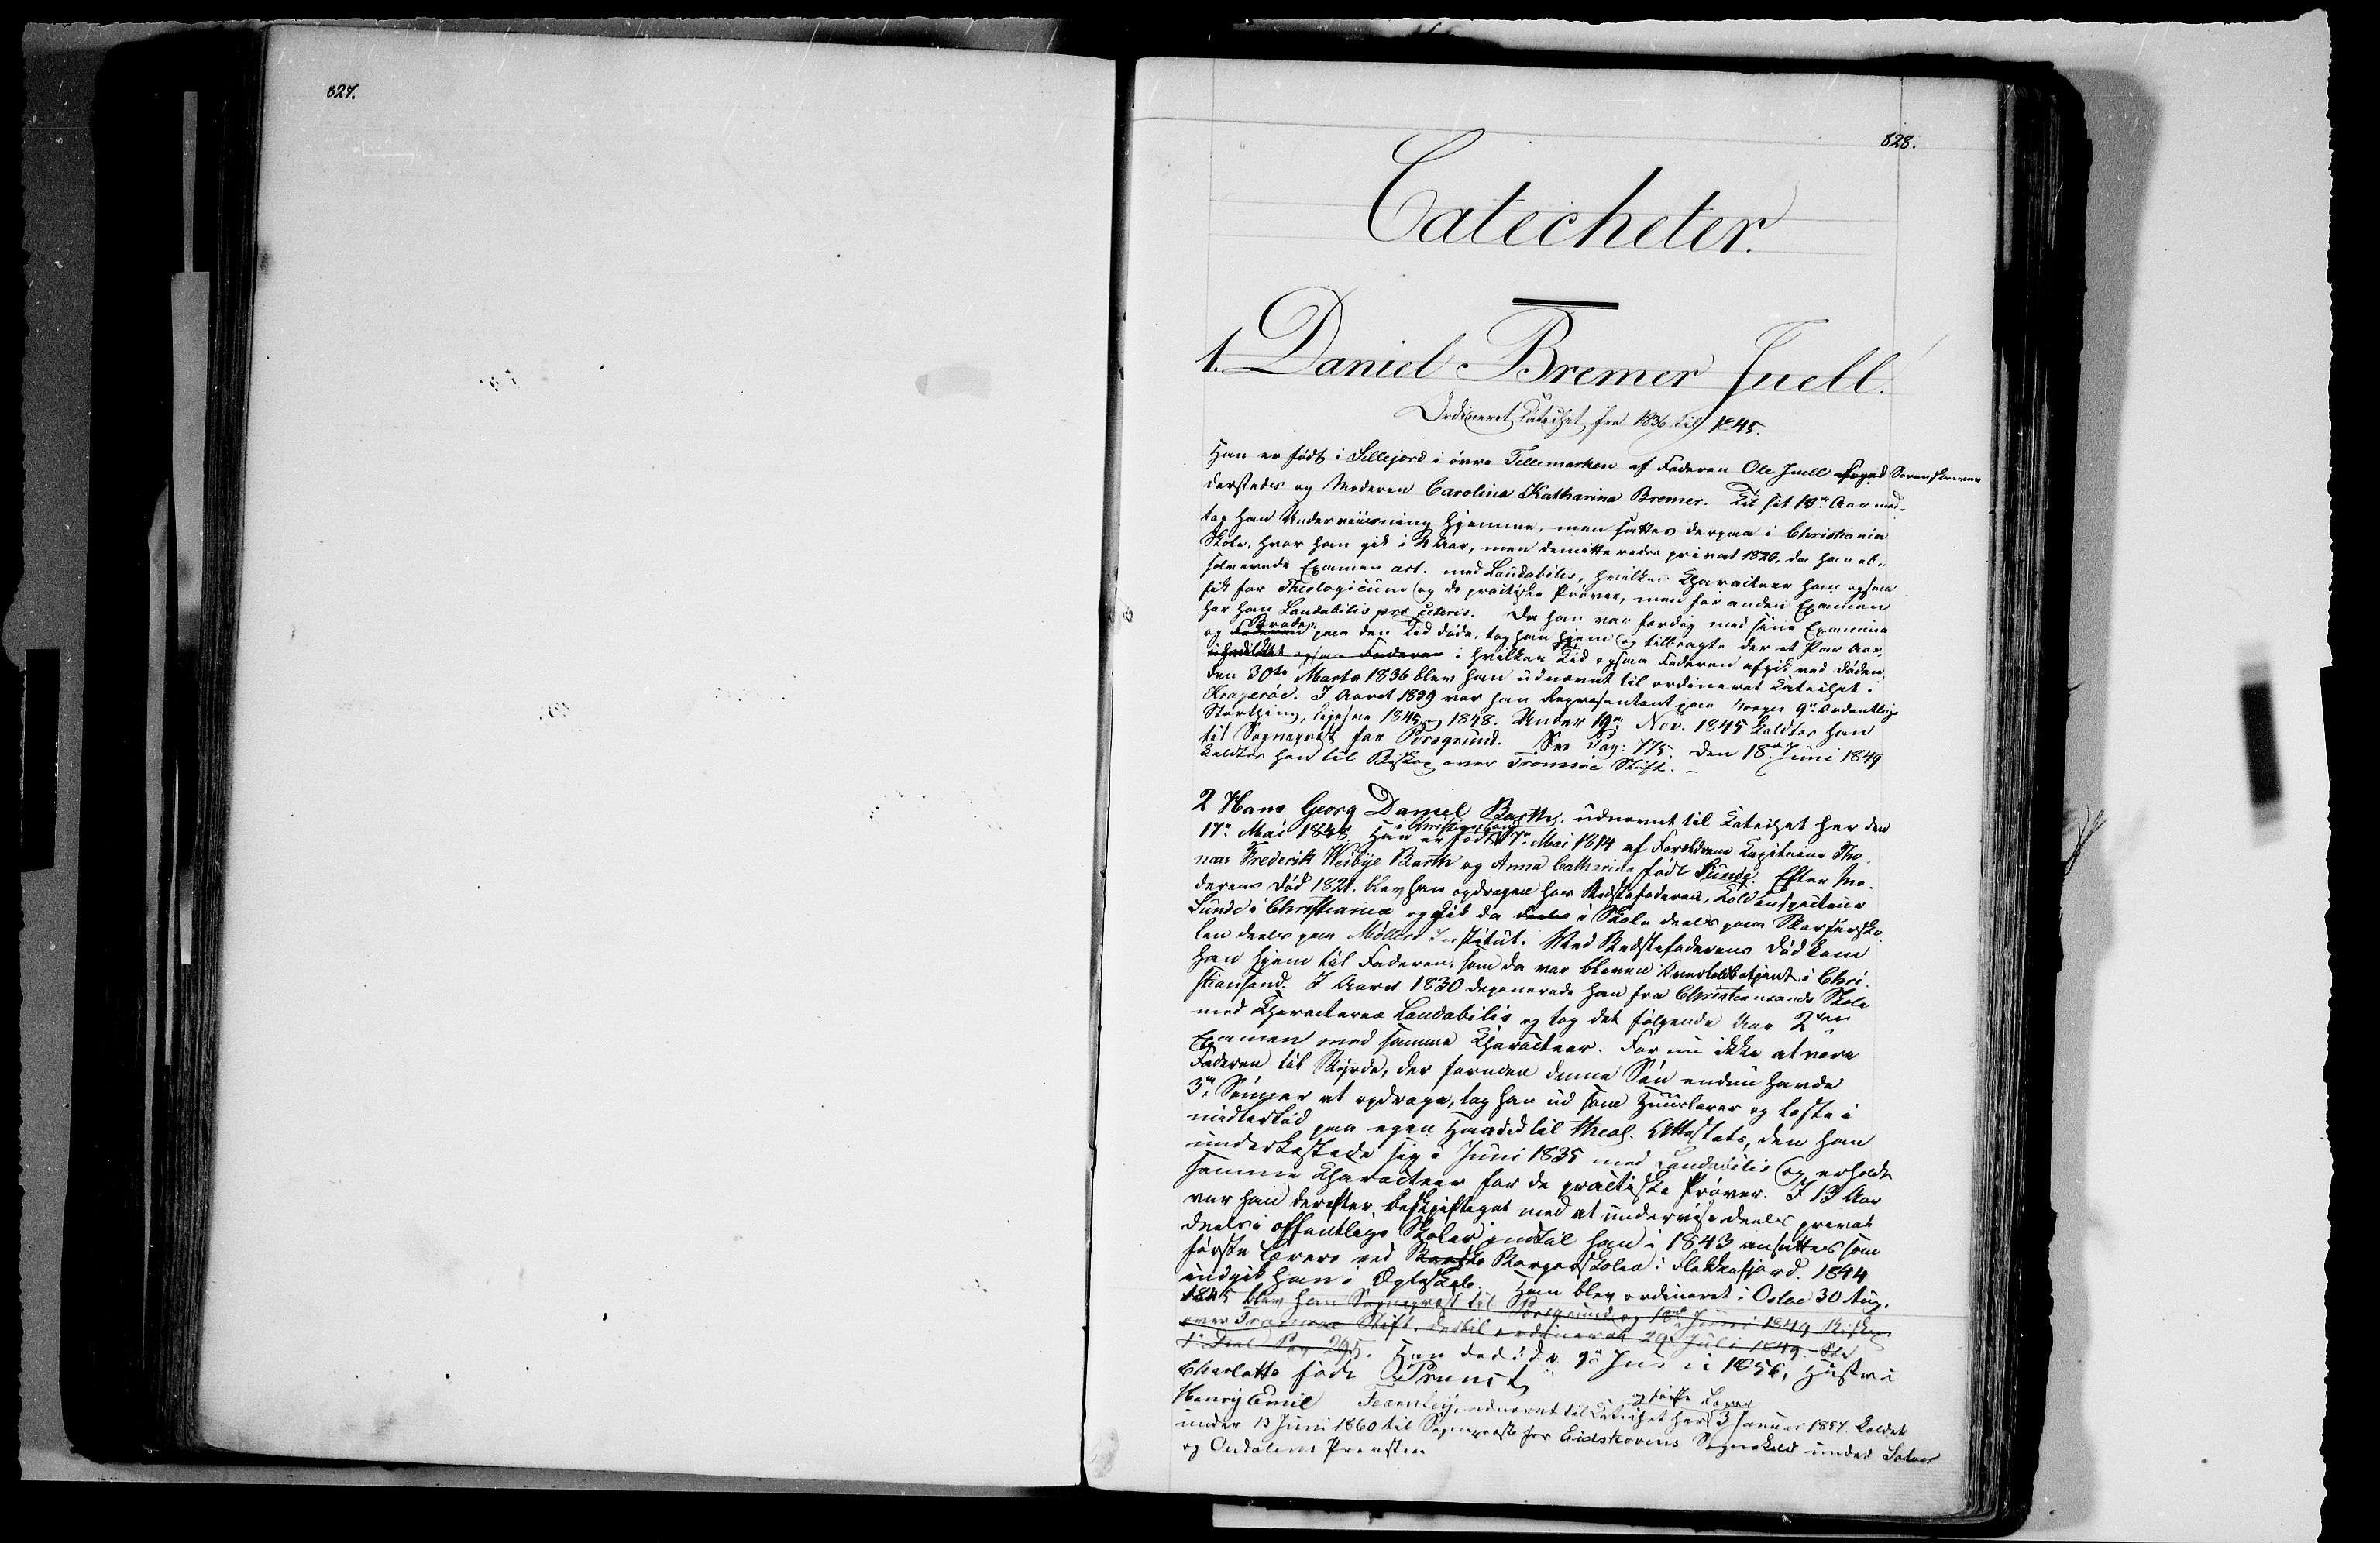 827.
828.
Catecheter.
1. Daniel Bremer Juell.
Ordineret Catechet fra 1836 til 1845.
Han er født i Sillejord i övre Tellemarken af Faderen Ole Juell Foged Sorenskriver
dersteds og Moderen Carolina Katharina Bremer. Til sit 13de Aar mod-
tog han Underviisning hjemme, men sattes derpaa i Christiania
Skole, hvor han gik i 4 Aar, men demitteredes privat 1826, da han ab-
solverede Examen art. med Laudabilis, hvilken Characteer han ogsaa
fik for Theologicum og de practiske Prøver, men for anden Examen
har han Laudabilis præ ceteris. Da han var færdig med sine Examina
og Faderen Broder paa den Tid døde, tog han hjem og tilbragte der et Par Aar,
ogsaa Faderen i hvilken Tid ogsaa Faderen afgik ved Døden.
Den 30te Marts 1836 blev han udnævnt til ordineret Catechet i
Kragerøe. I Aaret 1839 var han Repræsentant paa Norges 9de Ordentlige
Storthing, ligesaa 1845 og 1848. Under 19de Nov. 1845 kaldtes han
til Sognepræst for Porsgrund. See Pag: 775. Den 18de Juni 1849
kaldtes han til Biskop over Tromsöe Stift. –
2 Hans Georg Daniel Barth, udnævnt til Catechet her den
17de Mai 1848. Han er født i Christiansand 17de Mai 1814 af Forældrene Capitaine Tho-
mas Frederik Weibye Barth og Anna Cathrine født Sunde. Efter Mo-
derens Död 1821, blev han opdragen hos Bedstefaderen, Toldinspecteur
Sunde i Christiania og gik da deels i Skole deels paa Borgersko-
len deels paa Møllers Institut. Ved Bedstefaderens Död kom
han hjem til Faderen, som da var bleven Overtoldbetjent i Chri-
stiansand. I Aaret 1830 deponerede han fra Christiansands Skole
med Characteren Laudabilis og tog det følgende Aar 2den
Examen med samme Characteer. For nu ikke at være
Faderen til Byrde, der foruden denne Sön endnu havde
3de Sönner at opdrage, tog han ud som Huuslærer og læste i-
midlertid paa egen Haand til theol. Attestats, den han
underkastede sig i Juni 1835 med Laudabilis og erholdt
samme Characteer for de practiske Prøver. I 13 Aar
var han derefter beskjeftiget med at undervise deels privat
deels i offentlige Skoler indtil han i 1843 ansattes som
første Lærer ved Borgerskolen i Flekkefjord. 1844
indgik han i Ægteskab. Han blev ordineret i Osloe 30 Aug.
1845 blev han Sognepræst til Porsgrund og 18de Juni 1849 Biskop
over Tromsöe Stift, dertil ordineret 29de Juli 1849. See
1. Deel Pag 295. Han døde 9de Juni 1856, Hustru
Charlotte født
Henrij Emil Fearnley, udnævnt til Catechet og første Lærer her 3 Januar 1857. kaldet
under 13 Juni 1860 til Sognepræst for Eidskovens Sognekald under Solöer
og Oudalens Provstie